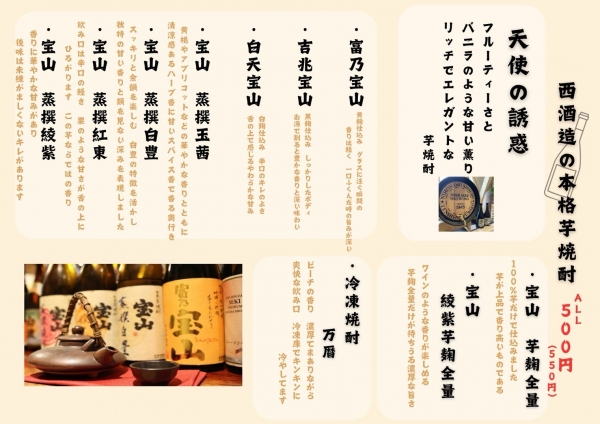 西酒造の本格芋焼酎
ALL
500円
(550円)
天使の誘惑
フルーティーさと
バニラのような甘い薫り
リッチでエレガントな
芋焼酎
・富乃宝山
黄麹仕込み グラスに注ぐ瞬間の
香りは軽く 一口ふくんだ時の旨みが深い
・吉兆宝山
黒麹仕込み しっかりしたボディ
お湯で割ると豊かな香りと深い味わい
・白天宝山
白麹仕込み 辛口のキレのよさ
舌の上で感じるやわらかな甘み
・宝山 蒸撰玉茜
黄桃やアプリコットなどの華やかな香りとともに
清涼感あるハーブ香に甘いスパイス香で香る奥行き
・宝山 蒸撰白豊
スッキリと余韻を楽しむ 白豊の特徴を活かし
独特の甘い香りと類を見ない深みを表現しました
・宝山 蒸撰紅東
飲み口は辛口の軽さ 栗のような甘さが舌の上に
ひろがります この芋ならではの香り
・宝山 蒸撰綾紫
香りに華やかな甘みがあり
後味は未練がましくないキレがあります
・宝山 芋麹全量
100%芋だけで仕込みました
芋が上品で香り高いものである
・宝山
綾紫芋麹全量
ワインのような香りが楽しめる
芋麹全量だけが持ちうる濃厚な旨さ
・冷凍焼酎
万暦
ピーチの香り 濃厚でまありながら
爽快な飲み口 冷凍庫でキンキンに
冷やしてます
富乃
宝山
宝山
蒸撰白豊